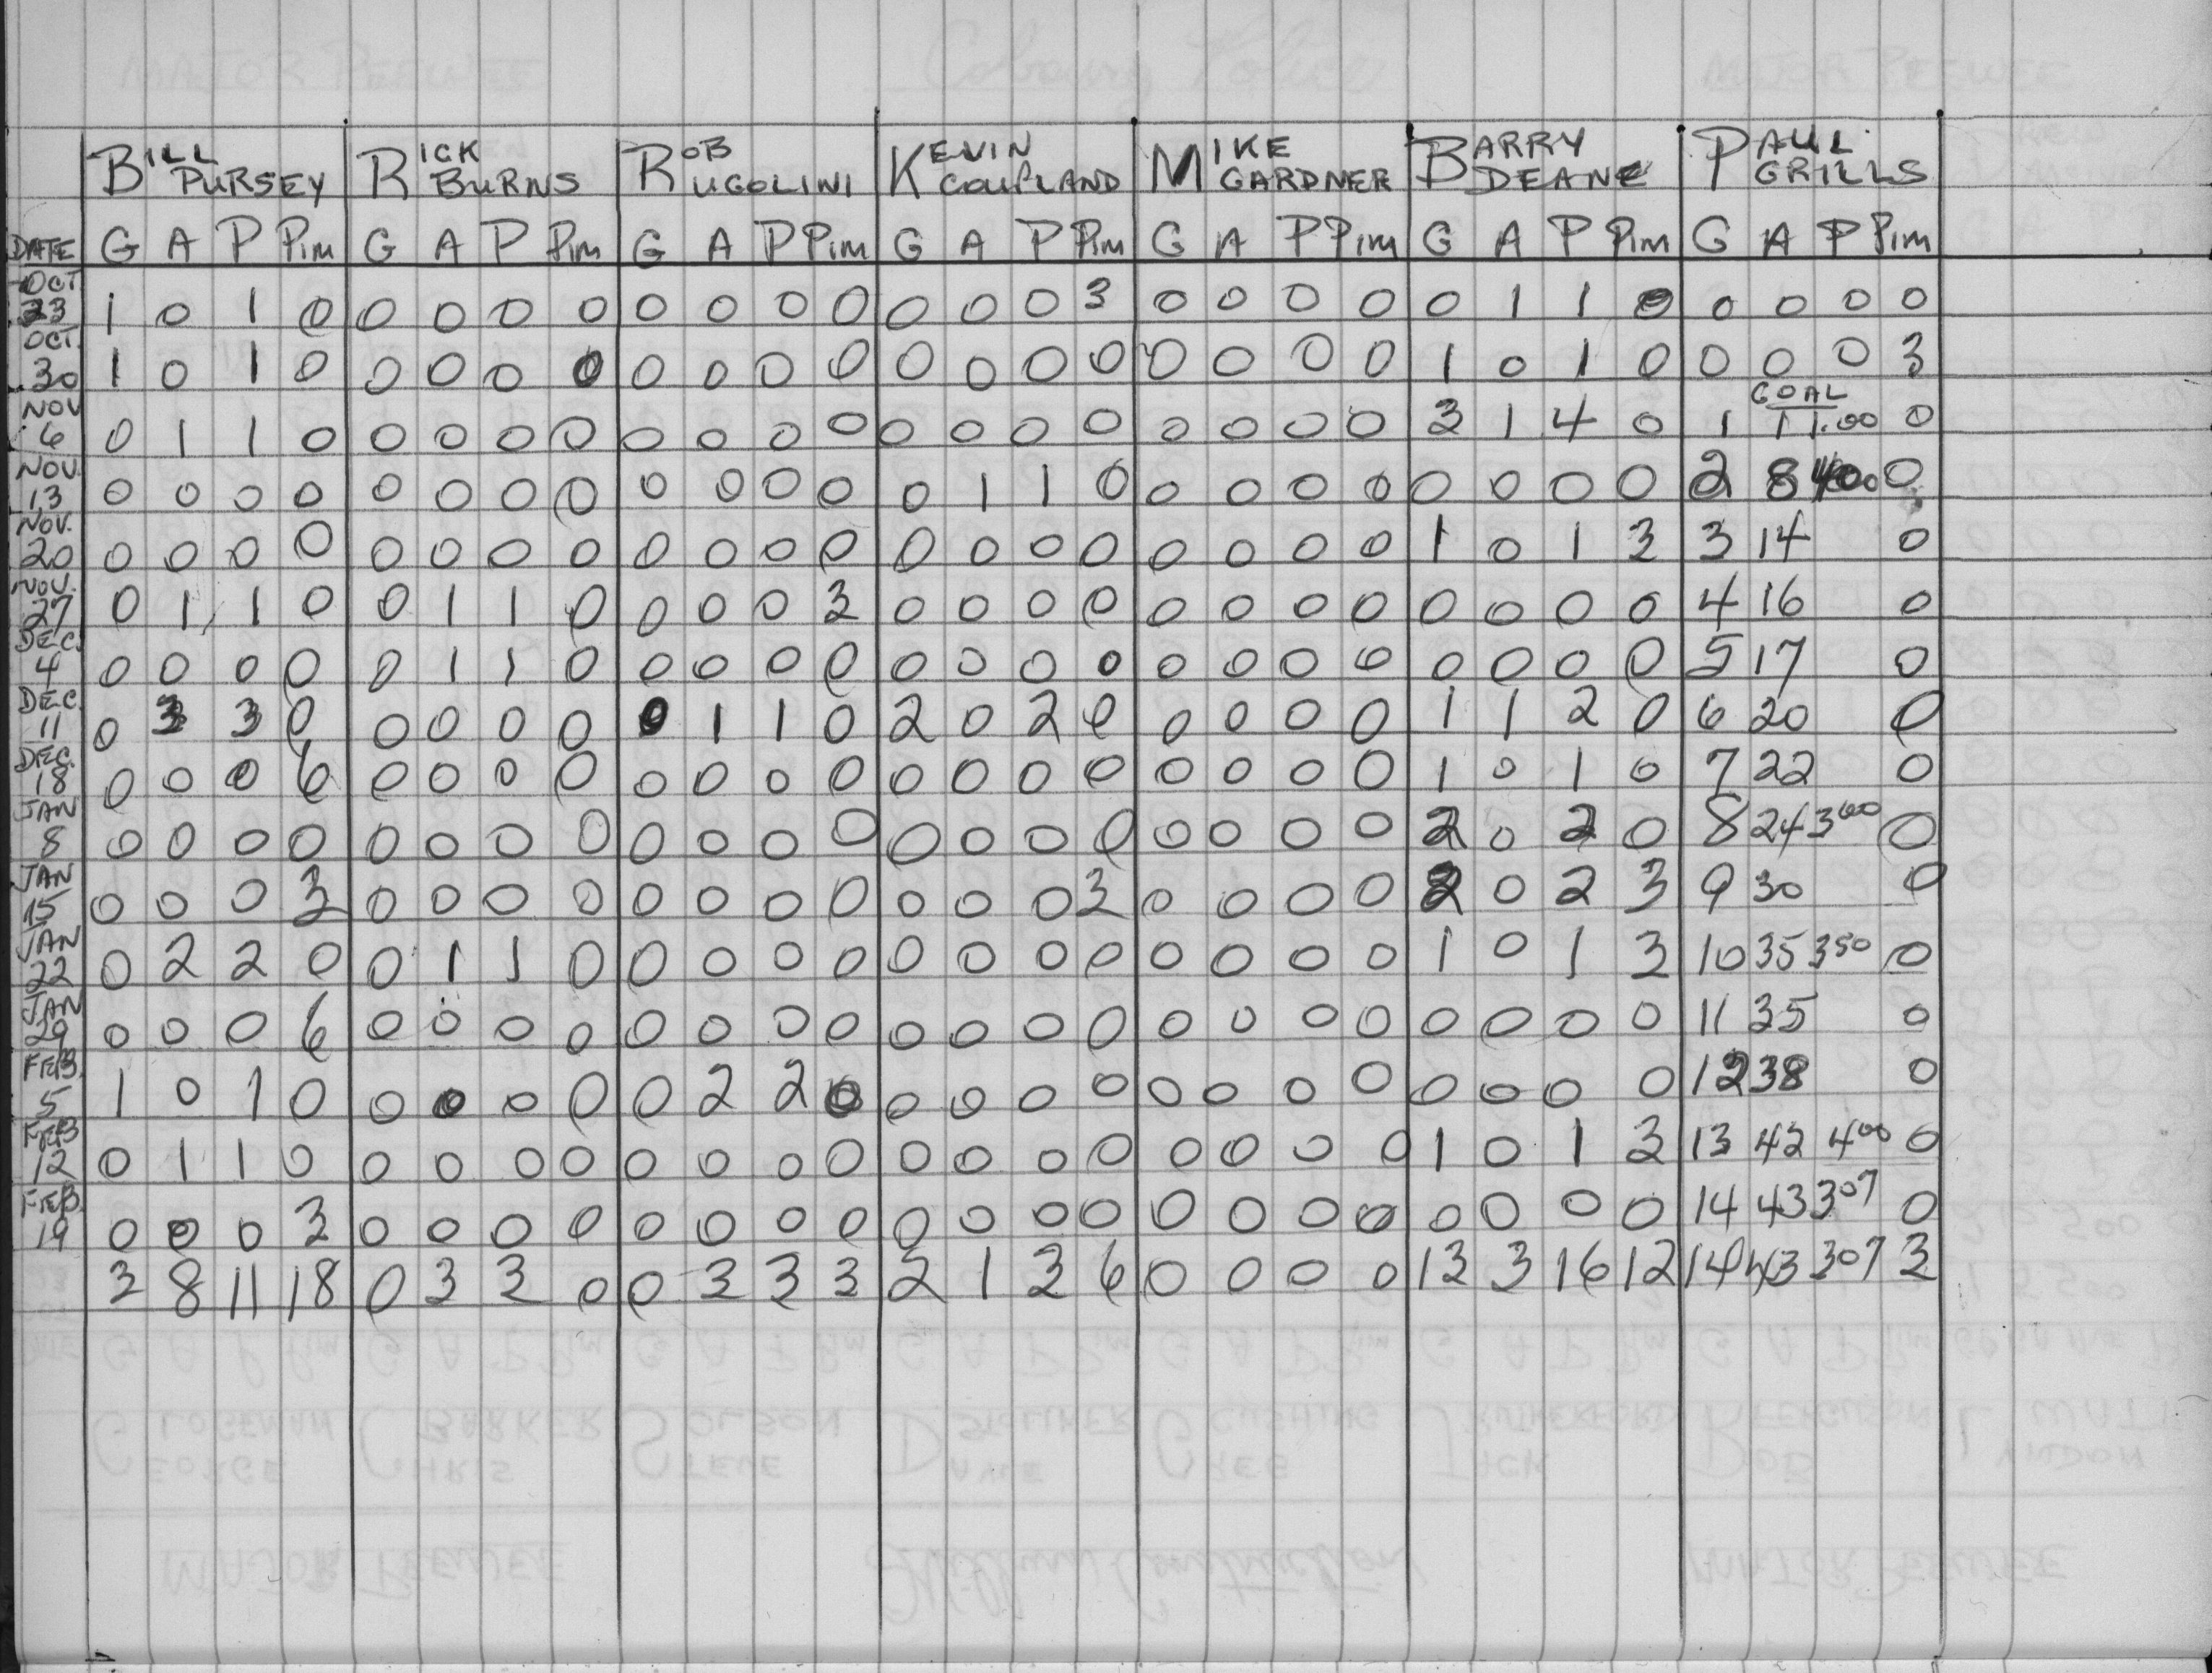 BILL PURSEY RICK BURNS ROB UGOLINI KEVIN COUPLAND MIKE GARDNER BARRY DEANE PAUL GRILLS
DATE G A P Pim G A P Pim G A P Pim G A P Pim G A P Pim G A P Pim G A P Pim
OCT 23 1 0 1 0 0 0 0 0 0 0 0 0 0 0 0 3 0 0 0 0 0 1 1 0 0 0 0 0
OCT. 30 1 0 1 0 0 0 0 0 0 0 0 0 0 0 0 0 0 0 0 0 1 0 1 0 0 0 0 3
GOAL
NOV 6 0 1 1 0 0 0 0 0 0 0 0 0 0 0 0 0 0 0 0 0 3 1 4 0 1 1 1.00 0
NOV. 13 0 0 0 0 0 0 0 0 0 0 0 0 0 1 1 0 0 0 0 0 0 0 0 0 2 8 400 0
NOV. 20 0 0 0 0 0 0 0 0 0 0 0 0 0 0 0 0 0 0 0 0 1 0 1 3 3 14 0
NOV. 27 0 1 1 0 0 1 1 0 0 0 0 3 0 0 0 0 0 0 0 0 0 0 0 0 4 16 0
DEC. 4 0 0 0 0 0 1 1 0 0 0 0 0 0 0 0 0 0 0 0 0 0 0 0 0 5 17 0
DEC. 11 0 3 3 0 0 0 0 0 0 1 1 0 2 0 2 0 0 0 0 0 1 1 2 0 6 20 0
DEC. 18 0 0 0 6 0 0 0 0 0 0 0 0 0 0 0 0 0 0 0 0 1 0 1 0 7 22 0
JAN 8 0 0 0 0 0 0 0 0 0 0 0 0 0 0 0 0 0 0 0 0 2 0 2 0 8 24 300 0
JAN 15 0 0 0 3 0 0 0 0 0 0 0 0 0 0 0 3 0 0 0 0 2 0 2 3 9 30 0
JAN 22 0 2 2 0 0 1 1 0 0 0 0 0 0 0 0 0 0 0 0 0 1 0 1 3 10 35 350 0
JAN 29 0 0 0 6 0 0 0 0 0 0 0 0 0 0 0 0 0 0 0 0 0 0 0 0 11 35 0
FEB. 5 1 0 1 0 0 0 0 0 0 2 2 0 0 0 0 0 0 0 0 0 0 0 0 0 12 38 0
FEB 12 0 1 1 0 0 0 0 0 0 0 0 0 0 0 0 0 0 0 0 0 1 0 1 3 13 42 400 0
FEB. 19 0 0 0 3 0 0 0 0 0 0 0 0 0 0 0 0 0 0 0 0 0 0 0 0 14 43 307 0
3 8 11 18 0 3 3 0 0 3 3 3 2 1 3 6 0 0 0 0 13 3 16 12 14 43 307 3